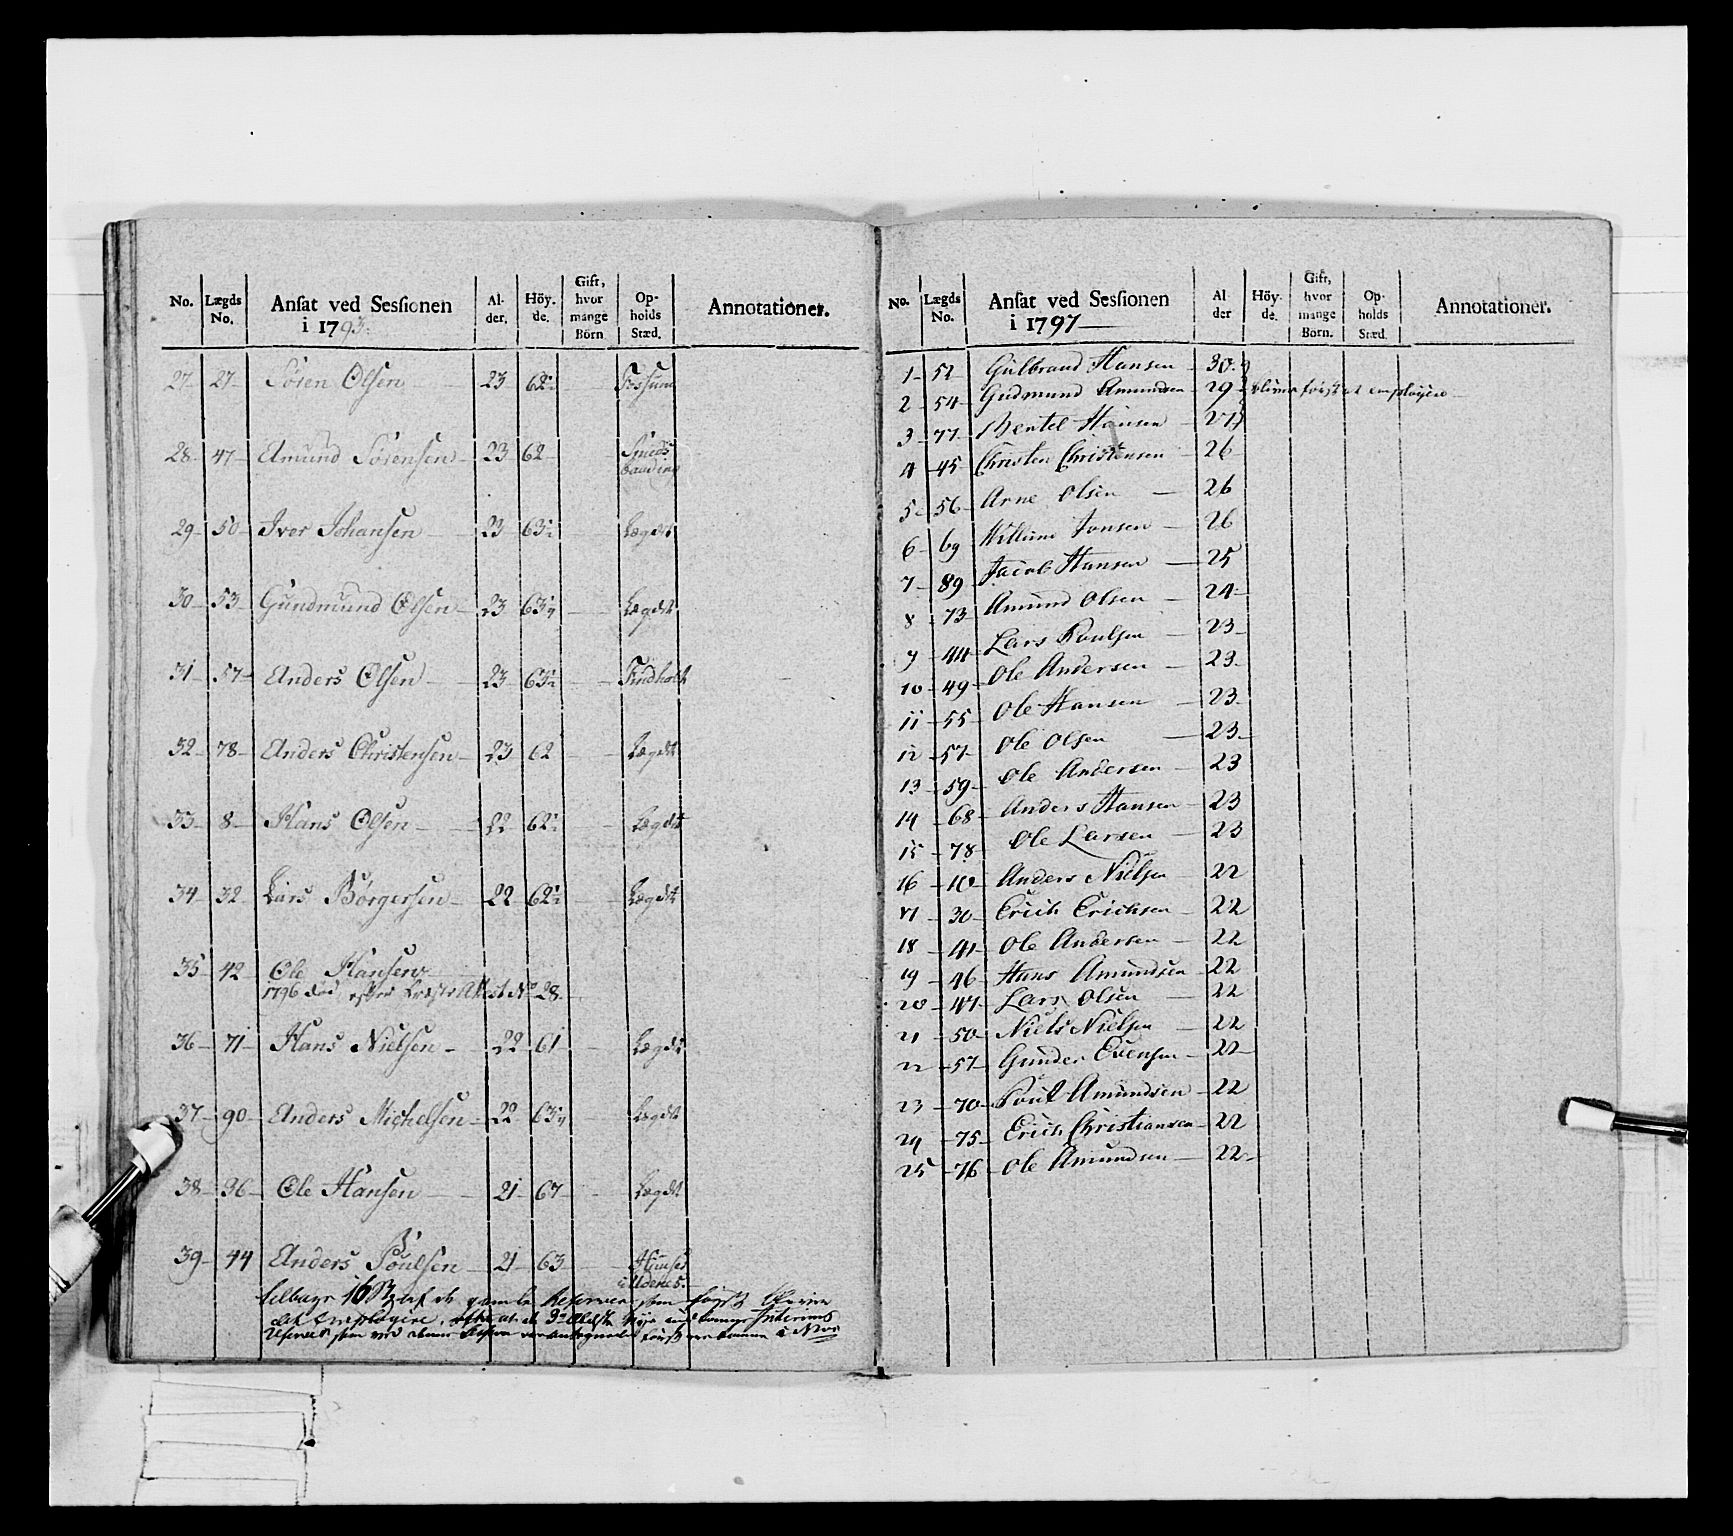 No. Lægds No. Ansat ved Sessionen i 1793. Al-der. Höy-de. Gift, hvor mange Börn Op-holds Stæd. Annotationer.
27 27 Sören Olsen 23 62½ Fossum
28 47 Amund Sörensen 23 62
29 50 Iver Johansen 23 63½ Lægdet
30 53 Gundmund Olsen 23 63¼ Lægdet
31 57 Anders Olsen 23 63½ Findholt
32 78 Anders Christensen 23 62 Lægdet
33 8 Hans Olsen 22 62½ Lægdet
34 32 Lars Börgersen 22 62½ Lægdet
35 42 Ole Hansen
1796 död, efter Attest No 28
36 71 Hans Nielsen 22 61 Lægdet
37 90 Anders Michelsen 22 63¼ Lægdet
38 96 Ole Hansen 21 67 Lægdet
39 44 Anders Poulsen 21 63
af de gamle Reserver som först
No. Lægds No. Ansat ved Sessionen i 1797 Al der Höy-de. Gift, hvor mange Börn. Op-holds Stæd. Annotationer.
1 51 Gulbrand Hansen 30
2 54 Gudmund Amundsen 29 bliver först at employere
3 77 Bertel Hansen 27
4 45 Christen Christensen 26
5 56 Arne Olsen 26
6 69 Willum Jonsen 26
7 89 Jacob Hansen 25
8 73 Amund Olsen 24
9 44 Lars Poulsen 23
10 49 Ole Andersen 23
11 55 Ole Hansen 23
12 57 Ole Olsen 23
13 59 Ole Andersen 23
14 68 Anders Hansen 23
15 78 Ole Larsen 23
16 10 Anders Nielsen 22
17 30 Erich Erichsen 22
18 41 Ole Andersen 22
19 46 Hans Amundsen 22
20 47 Lars Olsen 22
21 50 Niels Nielsen 22
22 57 Gunder Evensen 22
23 70 Poul Amundsen 22
24 75 Erich Christiansen 22
25 76 Ole Amundsen 22